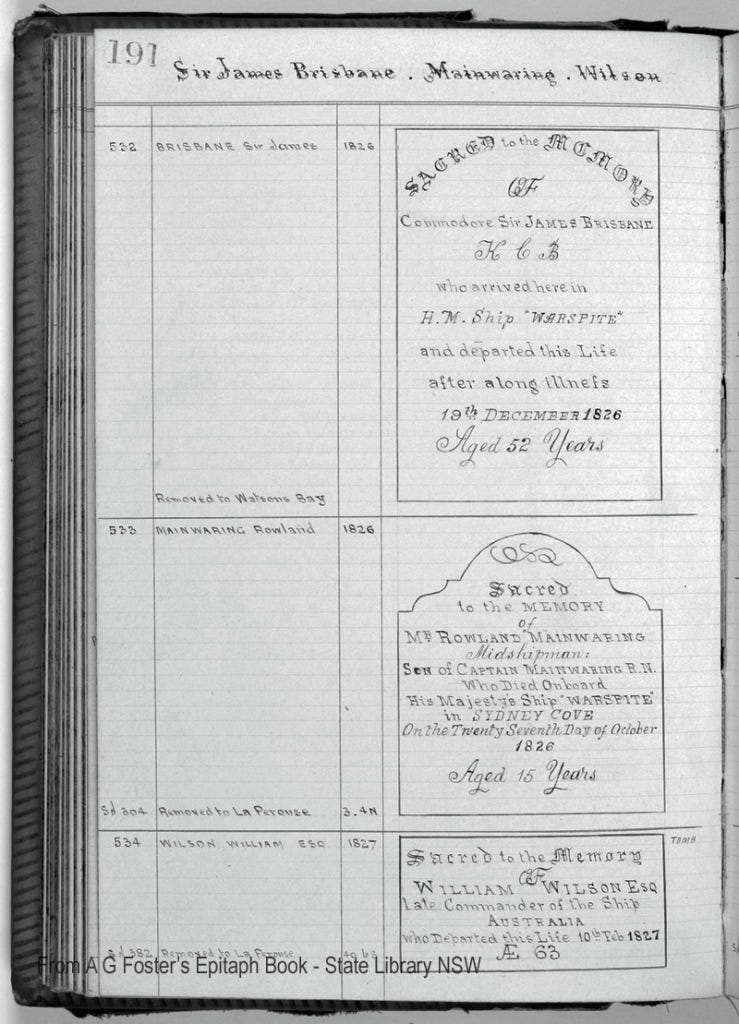 191
Sir James Brisbane . Mainwaring . Wilson
532 BRISBANE Sir James 1826
SACRED to the MEMORY
OF
Commodore Sir JAMES BRISBANE
K C B
who arrived here in
H.M. Ship "WARSPITE"
and departed this Life
after along illneſs
19th DECEMBER 1826
Aged 52 Years
Removed to Watsons Bay
533 MAINWARING Rowland 1826
Sacred
to the MEMORY
of
MR ROWLAND MAINWARING
Midshipman:
SON of CAPTAIN MAINWARING R.N.
Who Died Onboard
His Majesty's Ship "WARSPITE"
in SYDNEY COVE
On the Twenty Seventh Day of October
1826
Aged 15 Years
Sd 304 Removed to La Perouse 3.4N
534 WILSON WILLIAM ESQ 1827
TOMB
Sacred to the Memory
OF
WILLIAM WILSON ESQ
late Commander of the Ship
AUSTRALIA
who Departed this Life 10th Feb 1827
Æ 63
Sd 382 Removed to La Perouse
From A G Foster's Epitaph Book - State Library NSW